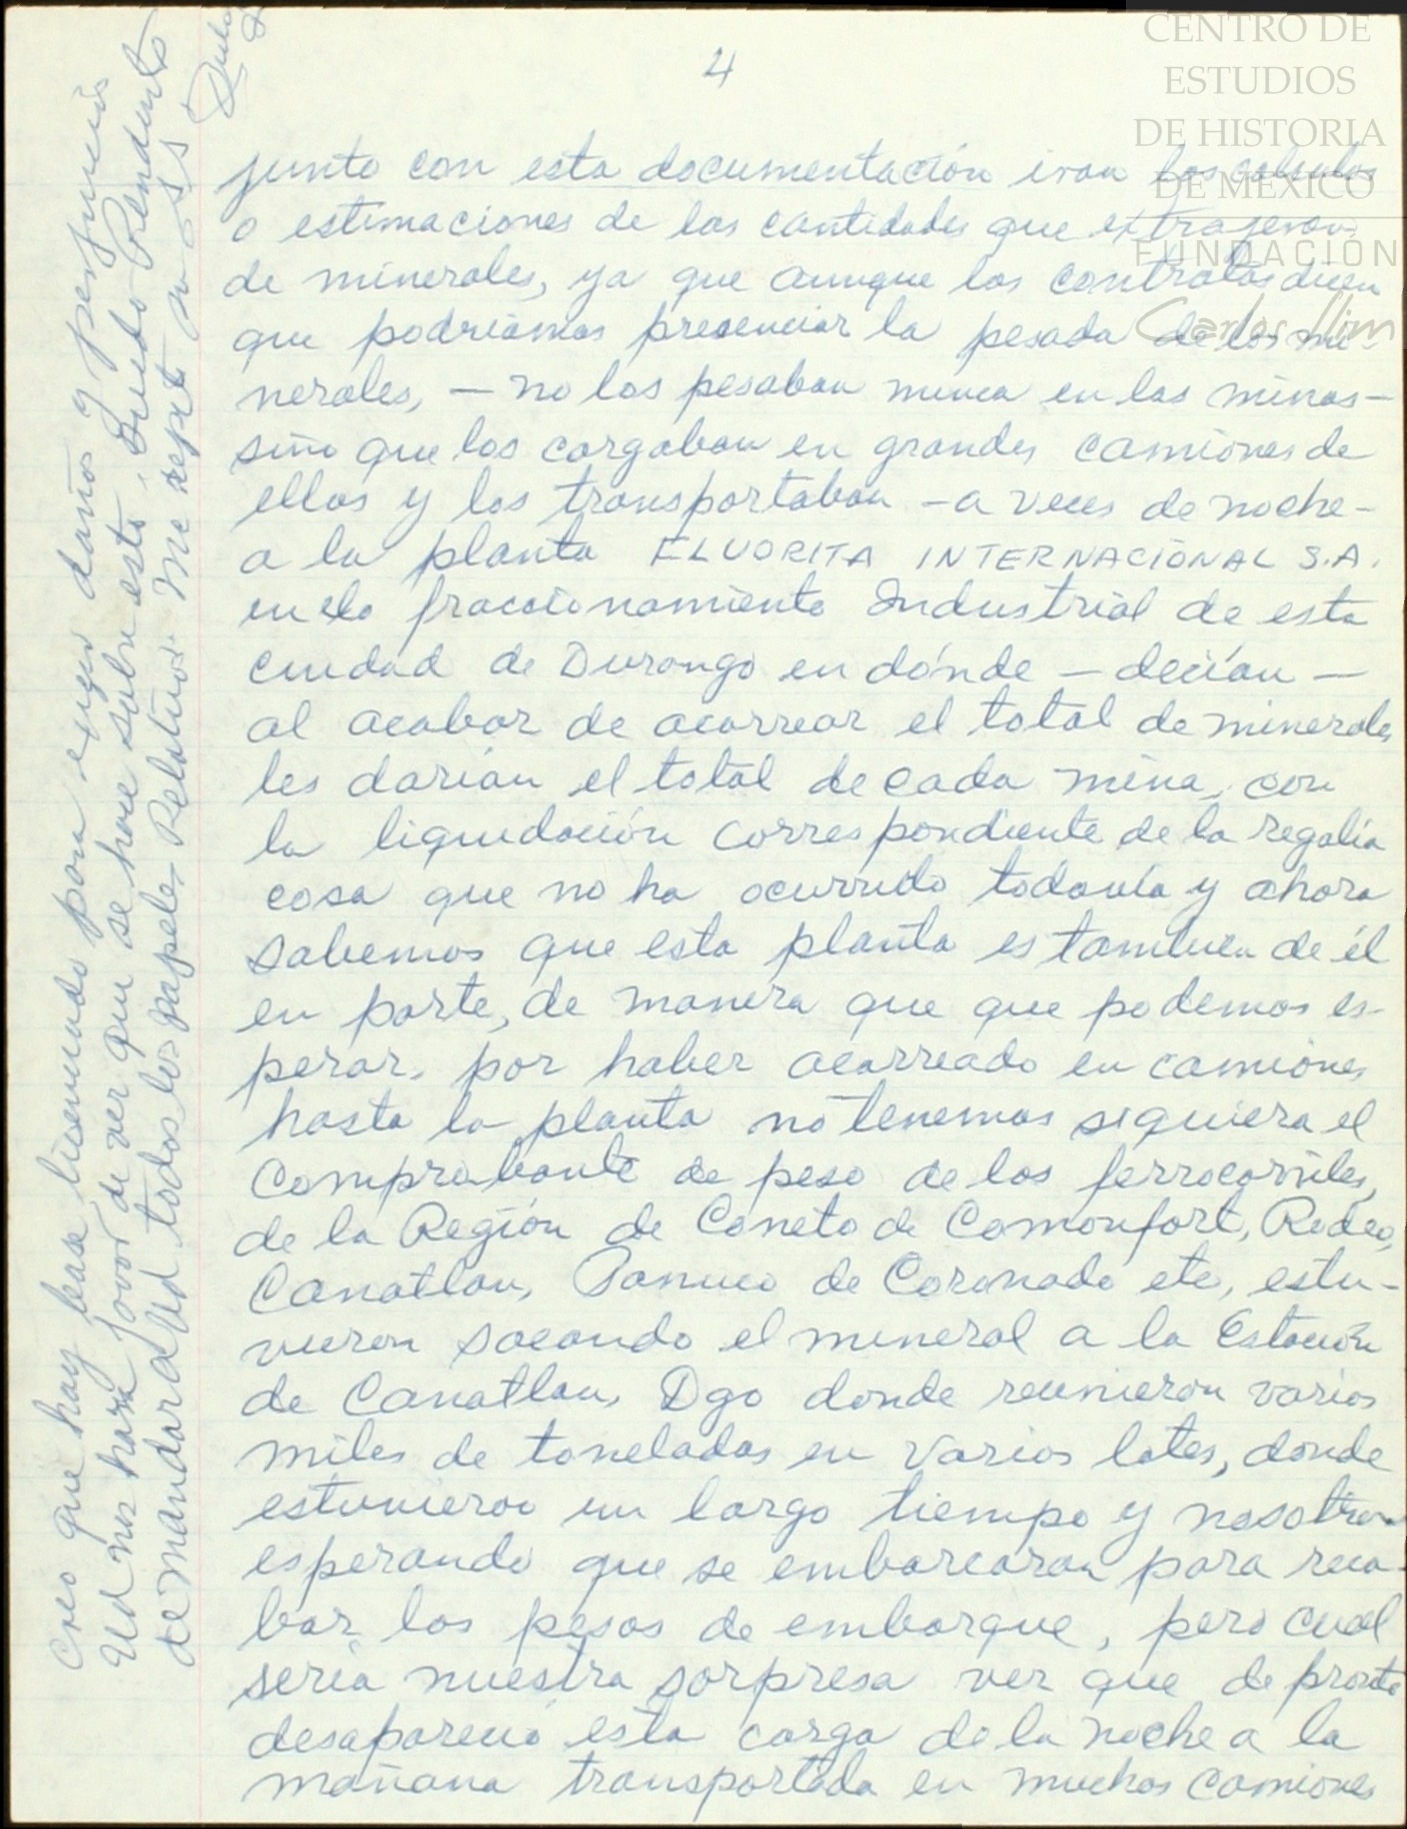 CENTRO DE
ESTUDIOS
DE HISTORIA
DE MÉXICO
FUNDACIÓN
Carlos Slim
4
junto con esta documentación iran los calculos
o estimaciones de las cantidades que extrajeron
de minerales, ya que aunque los contratos dicen
que podriamos presenciar la pesada de los mi-
nerales, — no los pesaban nunca en las minas —
sino que los cargaban en grandes camiones de
ellos y los transportaban - a veces de noche -
a la planta FLUORITA INTERNACIONAL S.A.
en el fraccionamiento Industrial de esta
ciudad de Durango en dónde — decían —
al acabar de acarrear el total de minerales
les darían el total de cada mina, con
la liquidación correspondiente de la regalía
cosa que no ha ocurrido todavía y ahora
sabemos que esta planta es tambien de él
en parte, de manera que que podemos es-
perar, por haber acarreado en camiones
hasta la planta no tenemos siquiera el
comprobante de peso de los ferrocarriles,
de la Región de Coneto de Comonfort, Rodeo,
Canatlan, Panuco de Coronado etc, estu-
vieron sacando el mineral a la Estación
de Canatlan, Dgo donde reunieron varios
miles de toneladas en varios lotes, donde
estuvieron un largo tiempo y nosotros
esperando que se embarcaran para reca-
bar los pesos de embarque, pero cual
sería nuestra sorpresa ver que de pronto
desapareció esta carga de la noche a la
mañana transportada en muchos camiones
Creo que hay base licenciado para exigir daños y perjuicios
Ud nos hara favor de ver que se hace sobre esto.
de mandar a Ud todos los papeles Relativos. Me repito su SS